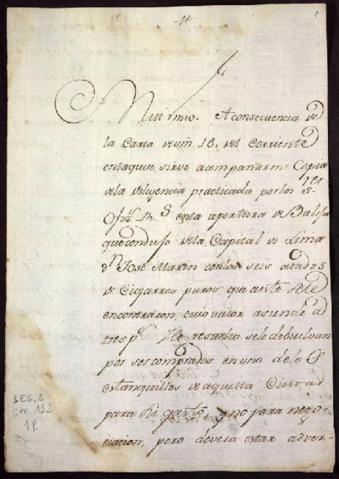 Muī mio. A consecuencia de
la Carta de vm 18. del corriente
en la que sirve acompañarme Copia
de la diligencia practicada por los S.res
en la apertura de
que condujo de la Capital de Lima
Dn José Marin con los seis atados
de Cigarros puros que a este se le
encontraron, cuio valor asciende á
tres ps. He resuelto se le debuelban
por ser comprados en uno de los
estanquillos de aquella Ciudad
para su gasto, y no para nego-
ciacion, pero deverá estar adver-
LEG. 6
Doc. 152
1 P.